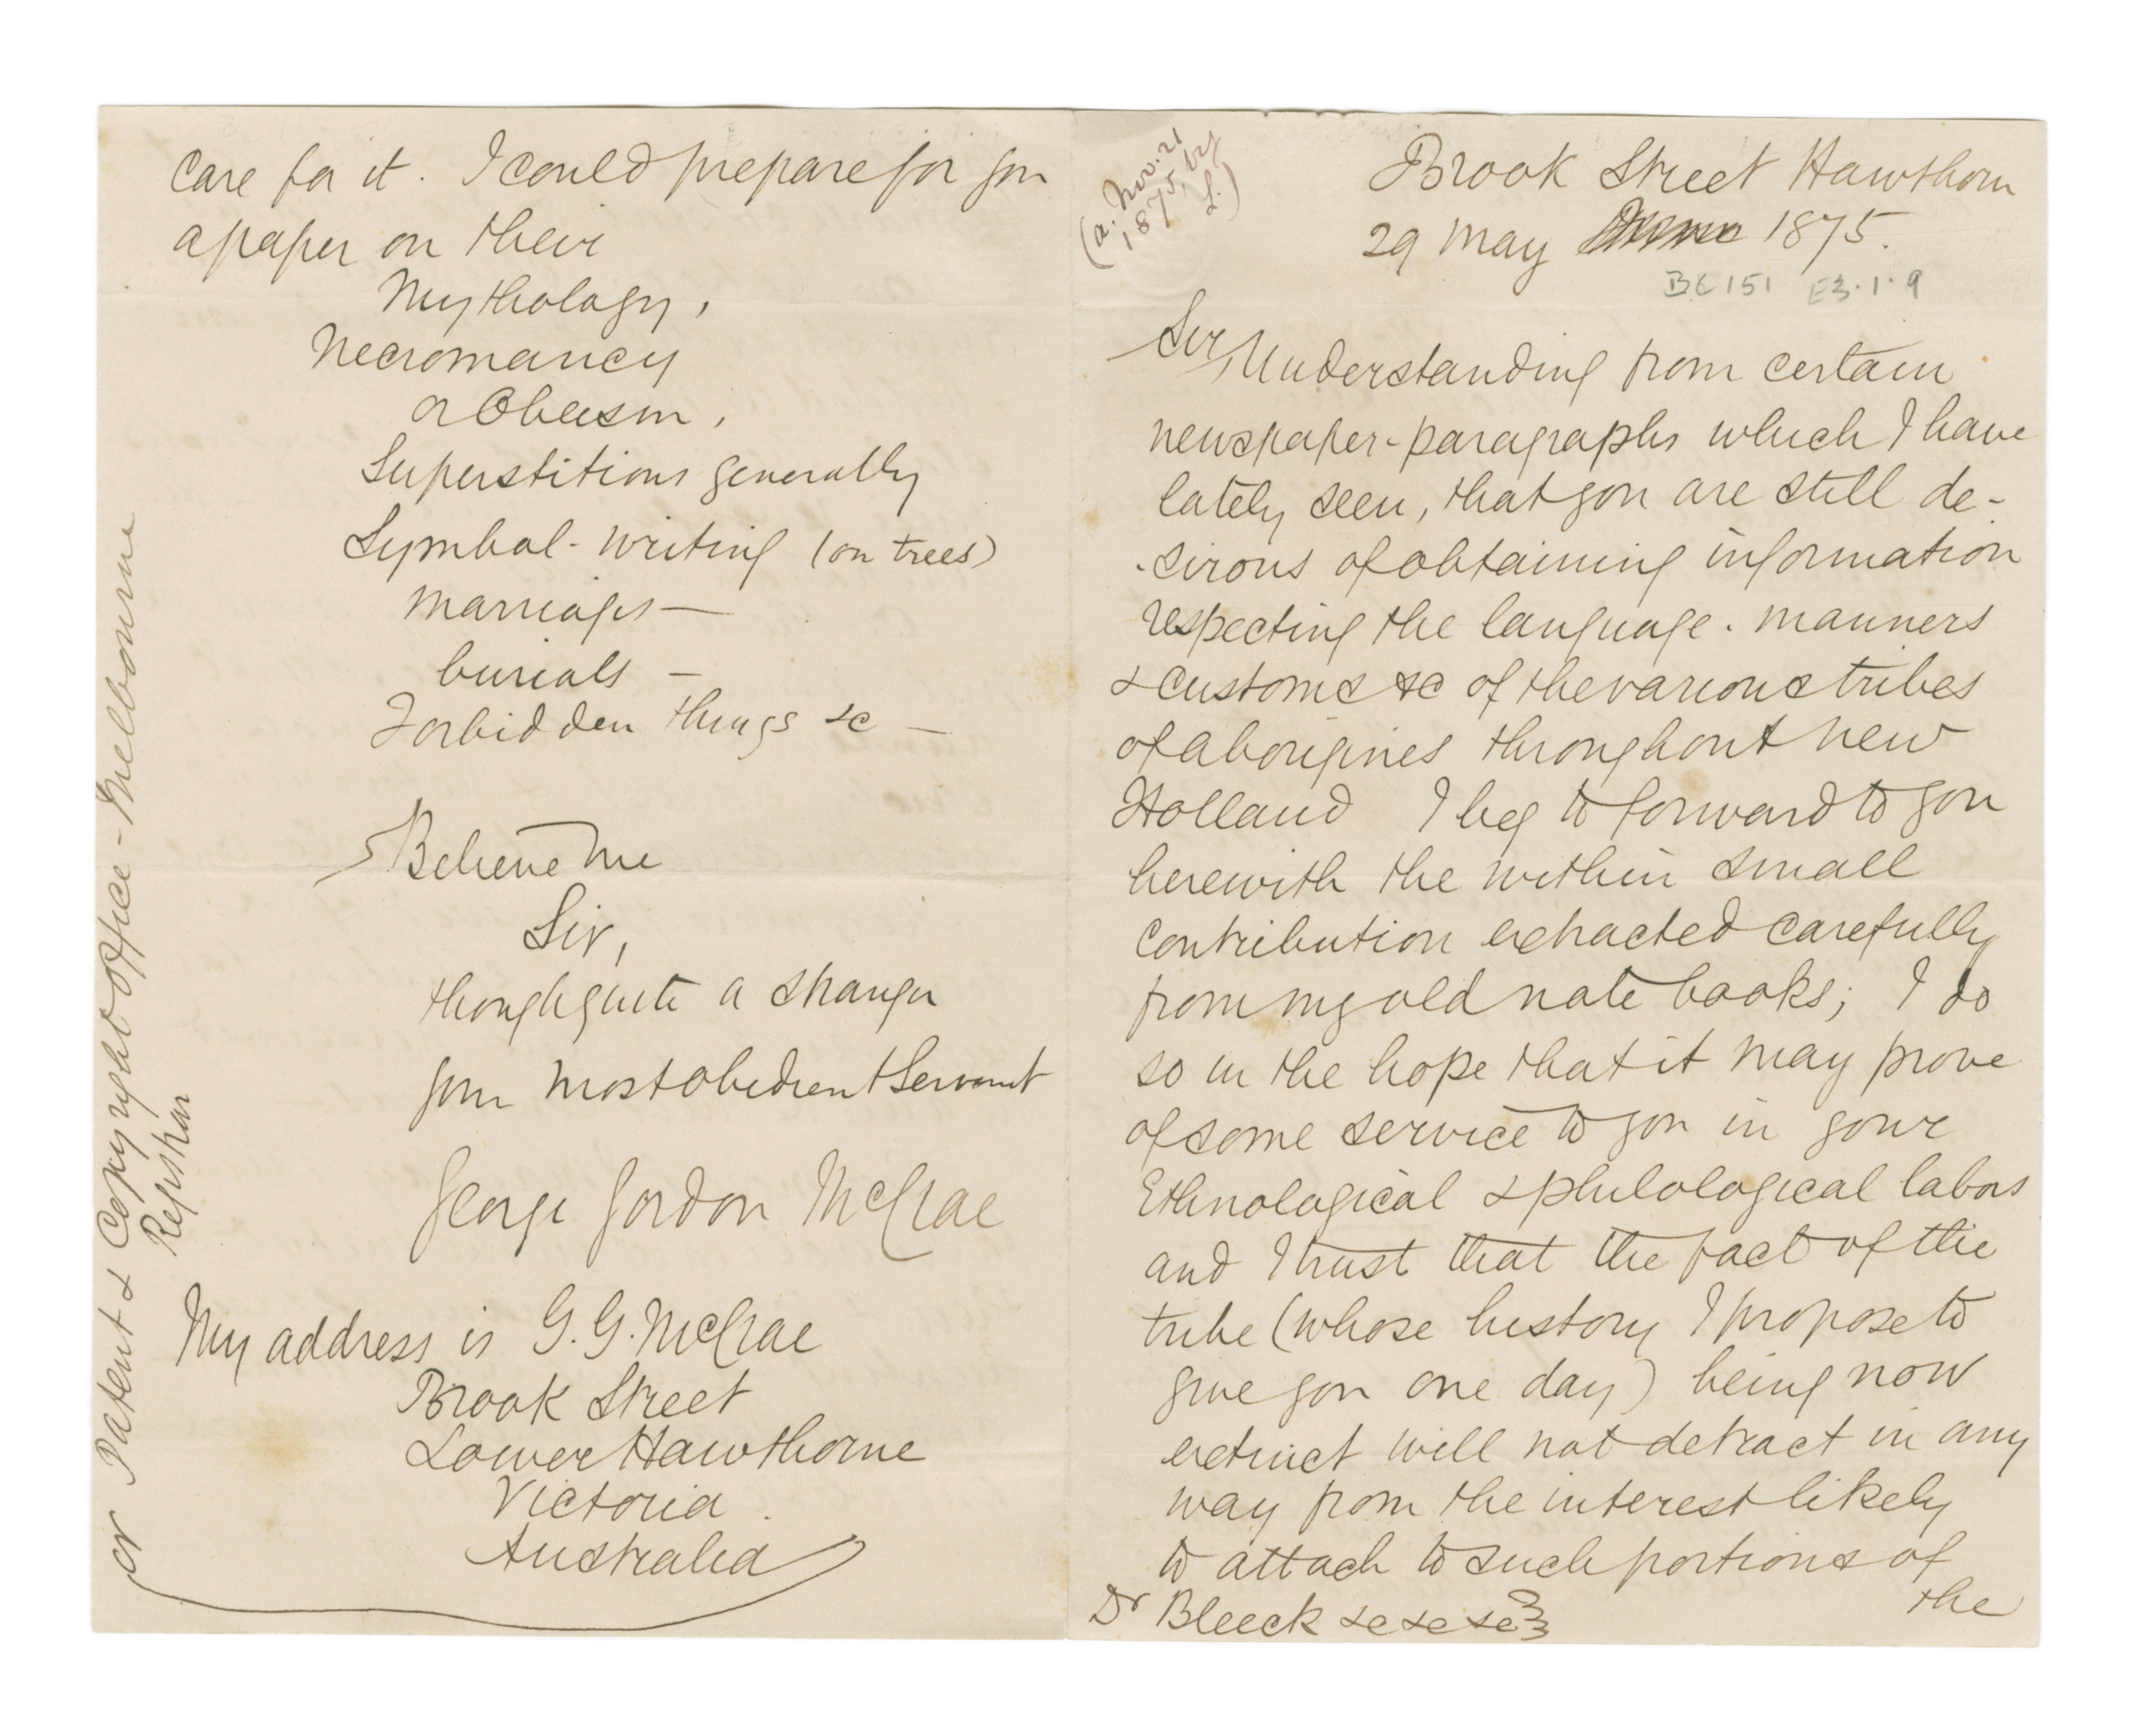 (a. Nov. 21
1875, by
L.)
Brook Street Hawthorn
29 May 1875.
BC 151 E3.1.9
Sir, Understanding from certain
newspaper-paragraphs which I have
lately seen, that you are still de-
-sirous of obtaining information
respecting the language. manners
& customs &c of the various tribes
of aborigines throughout New
Holland I beg to forward to you
herewith the within small
contribution extracted carefully
from my old note books; I do
so in the hope that it may prove
of some service to you in your
Ethnological & philological labors
and I trust that the fact of the
tribe (whose history I propose to
give you one day) being now
extinct will not detract in any
way from the interest likely
to attach to such portions of
the
Dr Bleeck &c &c &c
care for it. I could prepare for you
a paper on their
Mythology,
Necromancy
or Obeeism,
Superstitions generally
Symbol-writing (on trees)
Marriages —
burials —
Forbidden things &c —
Believe me
Sir,
though quite a stranger
your most obedient Servant
George Gordon McCrae
My address is G. G. McCrae
Brook Street
Lower Hawthorne
Victoria.
Australia
or Patent & Copyright Office - Melbourne
Registrar